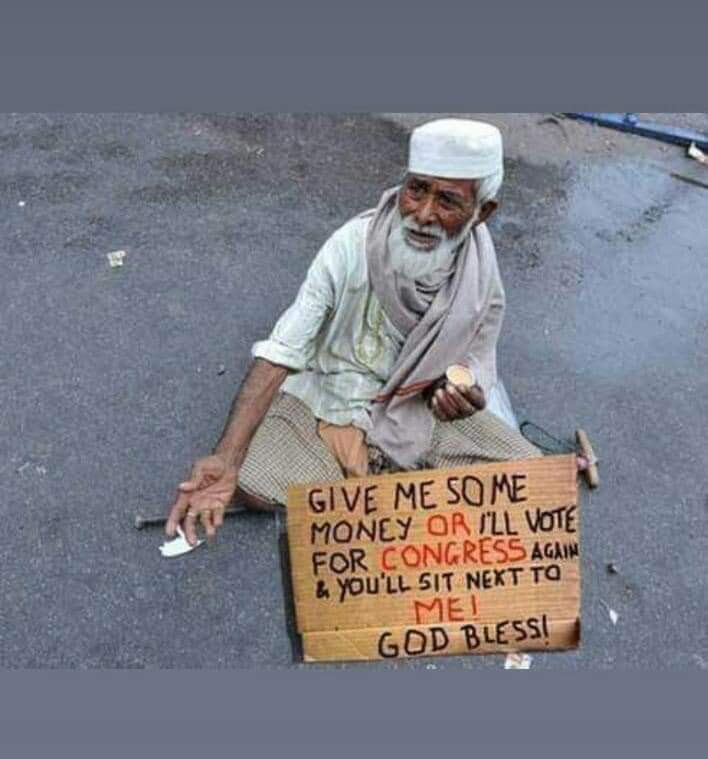 GIVE ME SOME
MONEY OR I'LL VOTE
FOR CONGRESS AGAIN
& YOU'LL SIT NEXT TO
ME!
GOD BLESS!